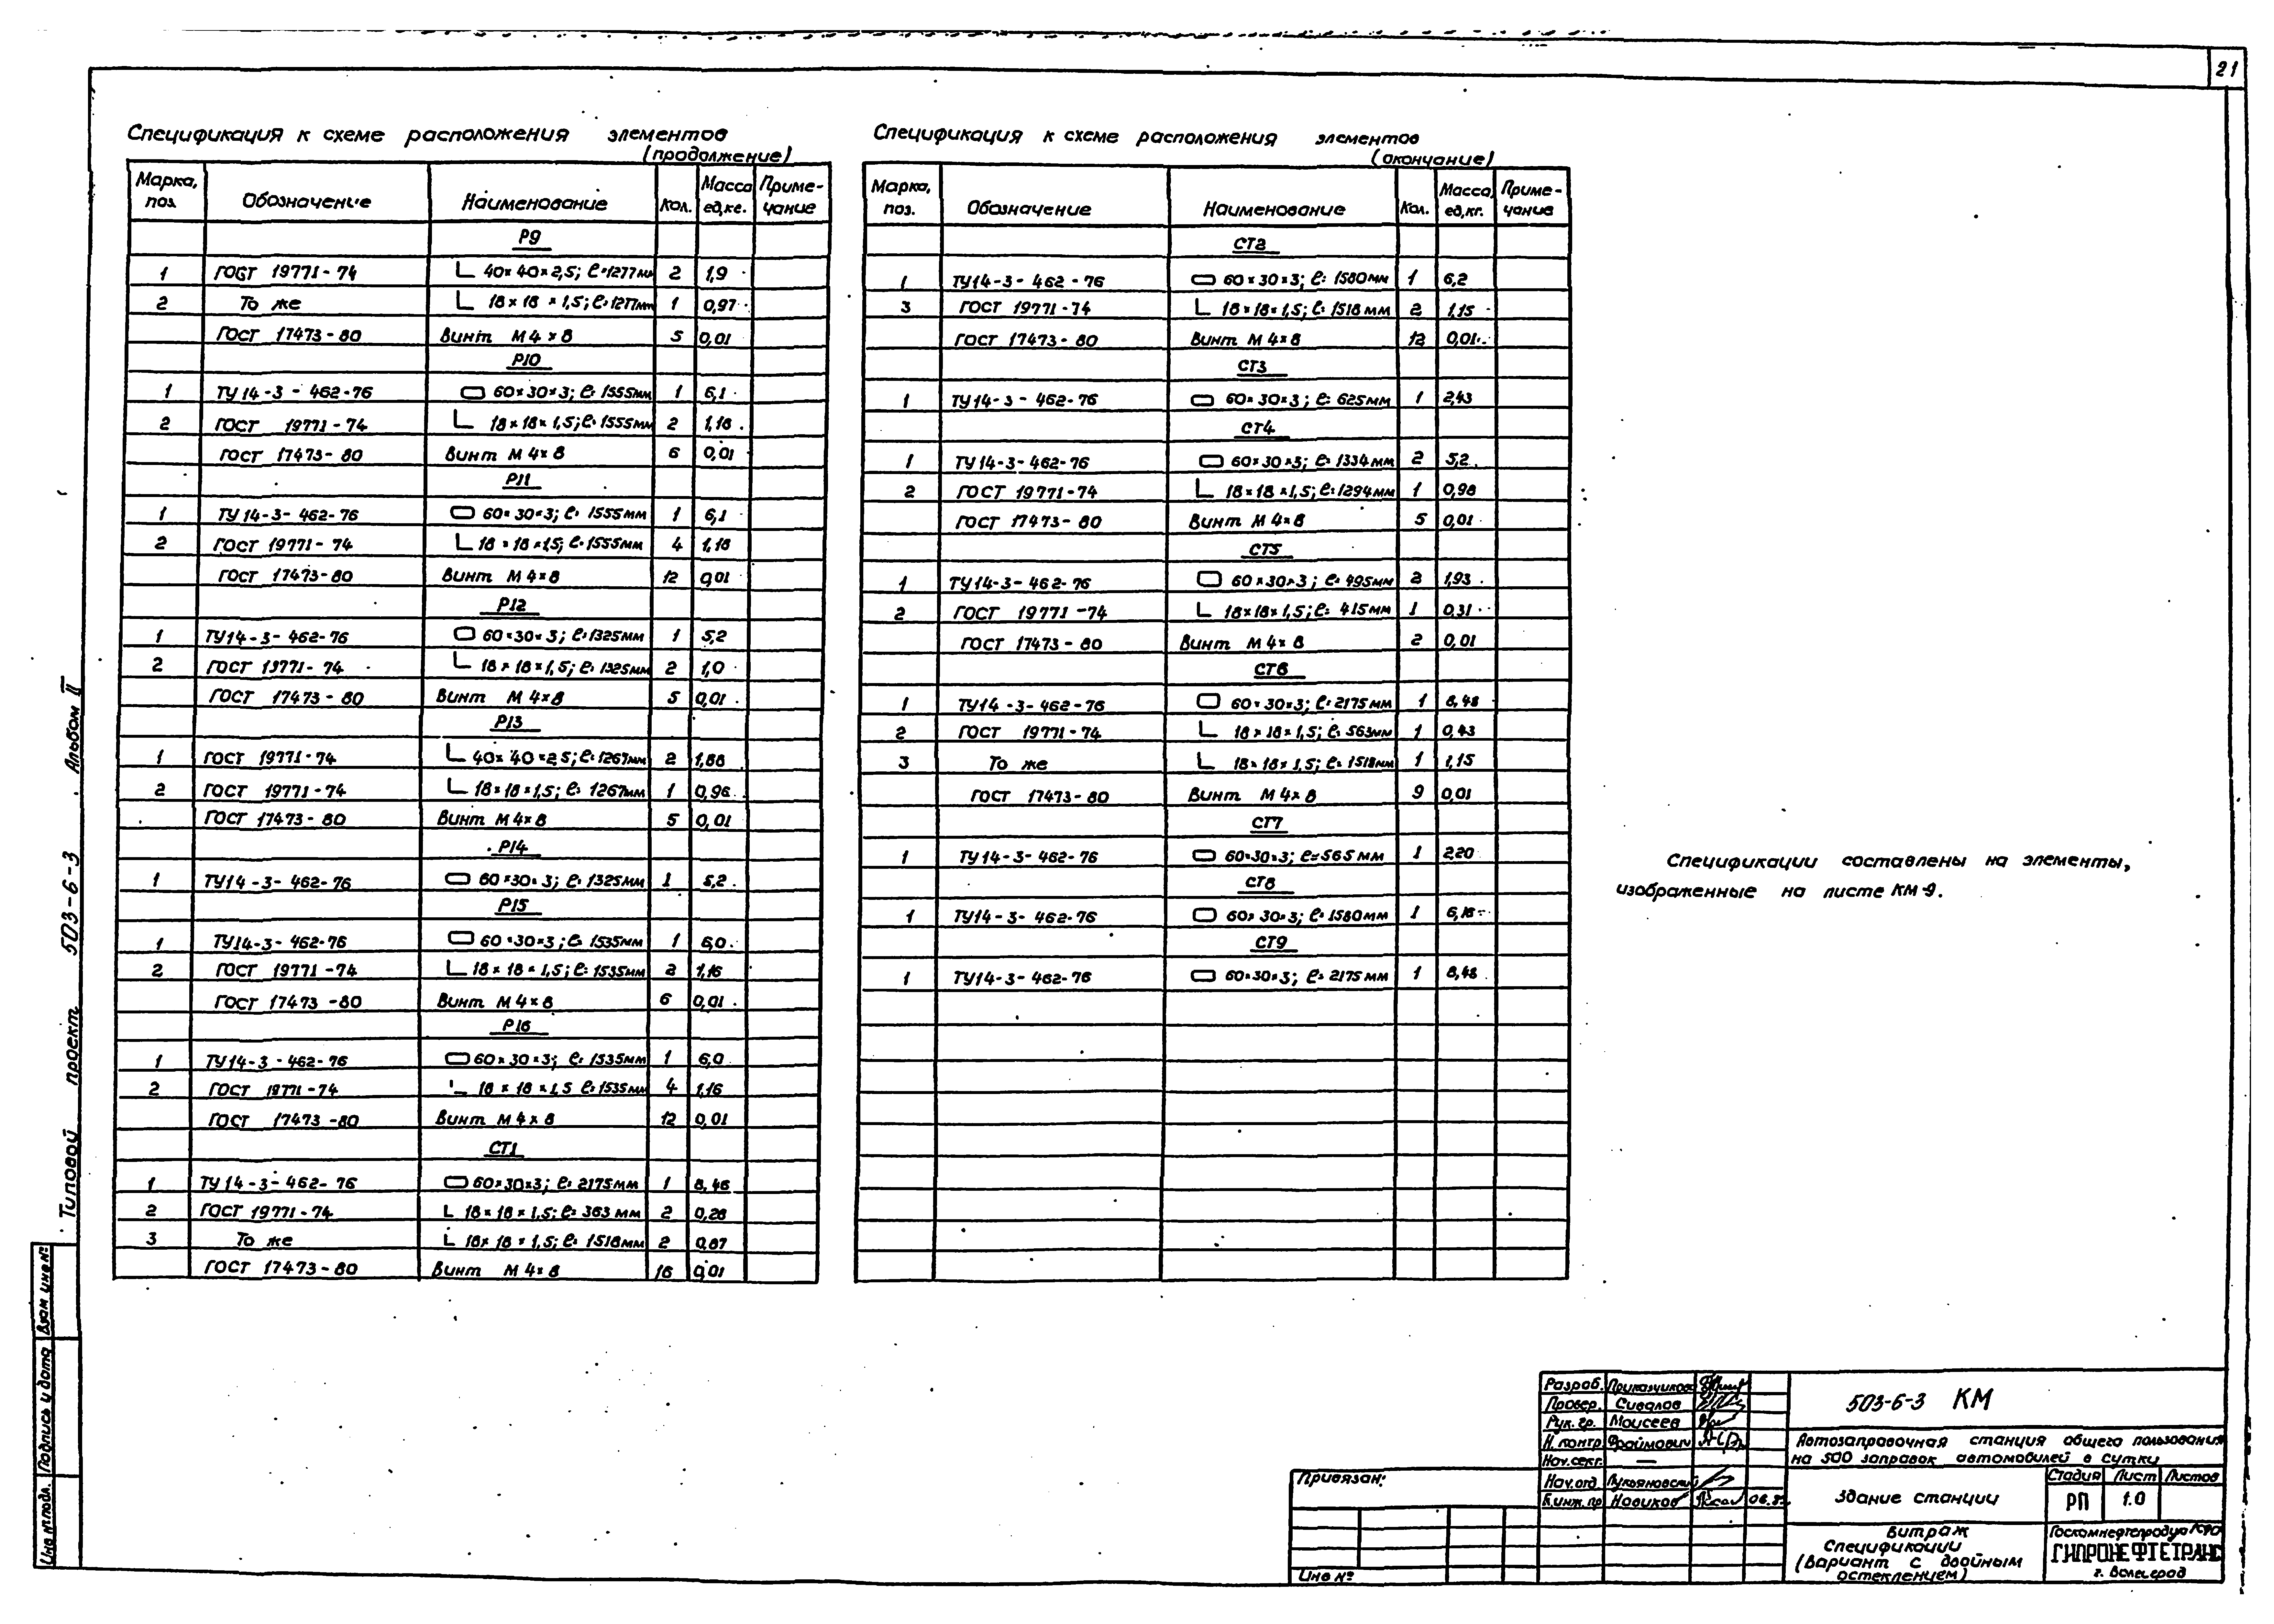 21
Спецификация к схеме расположения элементов
(продолжение)
Марка, поз. Обозначение Наименование Кол. Масса ед,кг. Приме-чание
Р9
1 ГОСТ 19771-74 L 40×40×2,5; ℓ=1277мм 2 1,9
2 То же L 18×18×1,5; ℓ=1277мм 1 0,97
ГОСТ 17473-80 Винт М4×8 5 0,01
Р10
1 ТУ14-3-462-76 ▭ 60×30×3; ℓ=1555мм 1 6,1
2 ГОСТ 19771-74 L 18×18×1,5; ℓ=1555мм 2 1,18
ГОСТ 17473-80 Винт М4×8 6 0,01
Р11
1 ТУ14-3-462-76 ▭ 60×30×3; ℓ=1555мм 1 6,1
2 ГОСТ 19771-74 L 18×18×1,5; ℓ=1555мм 4 1,18
ГОСТ 17473-80 Винт М4×8 12 0,01
Р12
1 ТУ14-3-462-76 ▭ 60×30×3; ℓ=1325мм 1 5,2
2 ГОСТ 19771-74 L 18×18×1,5; ℓ=1325мм 2 1,0
ГОСТ 17473-80 Винт М4×8 5 0,01
Р13
1 ГОСТ 19771-74 L 40×40×2,5; ℓ=1267мм 2 1,88
2 ГОСТ 19771-74 L 18×18×1,5; ℓ=1267мм 1 0,96
ГОСТ 17473-80 Винт М4×8 5 0,01
Р14
1 ТУ14-3-462-76 ▭ 60×30×3; ℓ=1325мм 1 5,2
Р15
1 ТУ14-3-462-76 ▭ 60×30×3; ℓ=1535мм 1 6,0
2 ГОСТ 19771-74 L 18×18×1,5; ℓ=1535мм 2 1,16
ГОСТ 17473-80 Винт М4×8 6 0,01
Р16
1 ТУ14-3-462-76 ▭ 60×30×3; ℓ=1535мм 1 6,0
2 ГОСТ 19771-74 L 18×18×1,5 ℓ=1535мм 4 1,16
ГОСТ 17473-80 Винт М4×8 12 0,01
СТ1
1 ТУ14-3-462-76 ▭ 60×30×3; ℓ=2175мм 1 8,48
2 ГОСТ 19771-74 L 18×18×1,5; ℓ=363мм 2 0,28
3 То же L 18×18×1,5; ℓ=1518мм 2 0,87
ГОСТ 17473-80 Винт М4×8 16 0,01
Спецификация к схеме расположения элементов
(окончание)
Марка, поз. Обозначение Наименование Кол. Масса ед,кг. Приме-чание
СТ2
1 ТУ14-3-462-76 ▭ 60×30×3; ℓ=1580мм 1 6,2
3 ГОСТ 19771-74 L 18×18×1,5; ℓ=1518мм 2 1,15
ГОСТ 17473-80 Винт М4×8 12 0,01
СТ3
1 ТУ14-3-462-76 ▭ 60×30×3; ℓ=625мм 1 2,43
СТ4
1 ТУ14-3-462-76 ▭ 60×30×3; ℓ=1334мм 2 5,2
2 ГОСТ 19771-74 L 18×18×1,5; ℓ=1294мм 1 0,98
ГОСТ 17473-80 Винт М4×8 5 0,01
СТ5
1 ТУ14-3-462-76 ▭ 60×30×3; ℓ=495мм 2 1,93
2 ГОСТ 19771-74 L 18×18×1,5; ℓ=415мм 1 0,31
ГОСТ 17473-80 Винт М4×8 2 0,01
СТ6
1 ТУ14-3-462-76 ▭ 60×30×3; ℓ=2175мм 1 8,48
2 ГОСТ 19771-74 L 18×18×1,5; ℓ=563мм 1 0,43
3 То же L 18×18×1,5; ℓ=1518мм 1 1,15
ГОСТ 17473-80 Винт М4×8 9 0,01
СТ7
1 ТУ14-3-462-76 ▭ 60×30×3; ℓ=565мм 1 2,20
СТ8
1 ТУ14-3-462-76 ▭ 60×30×3; ℓ=1580мм 1 6,16
СТ9
1 ТУ14-3-462-76 ▭ 60×30×3; ℓ=2175мм 1 8,48
Спецификации составлены на элементы,
изображенные на листе КМ-9.
Типовой проект 503-6-3 Альбом II
Инв № подл. Подпись и дата Взам инв №
Привязан:
Инв №
Разраб. Приказчикова
Провер. Сивалов
Рук. гр. Моисеев
Н. контр Фраймович
Нач. сект. —
Нач. отд Лукьяновский
Гл. инж. пр Новиков 06.8
503-6-3 КМ
Автозаправочная станция общего пользования
на 500 заправок автомобилей в сутки
Здание станции
Стадия Лист Листов
РП 10
Витраж
Спецификации
(вариант с двойным
остеклением)
Госкомнефтепродукт
ГИПРОНЕФТЕТРАНС
г. Волгоград